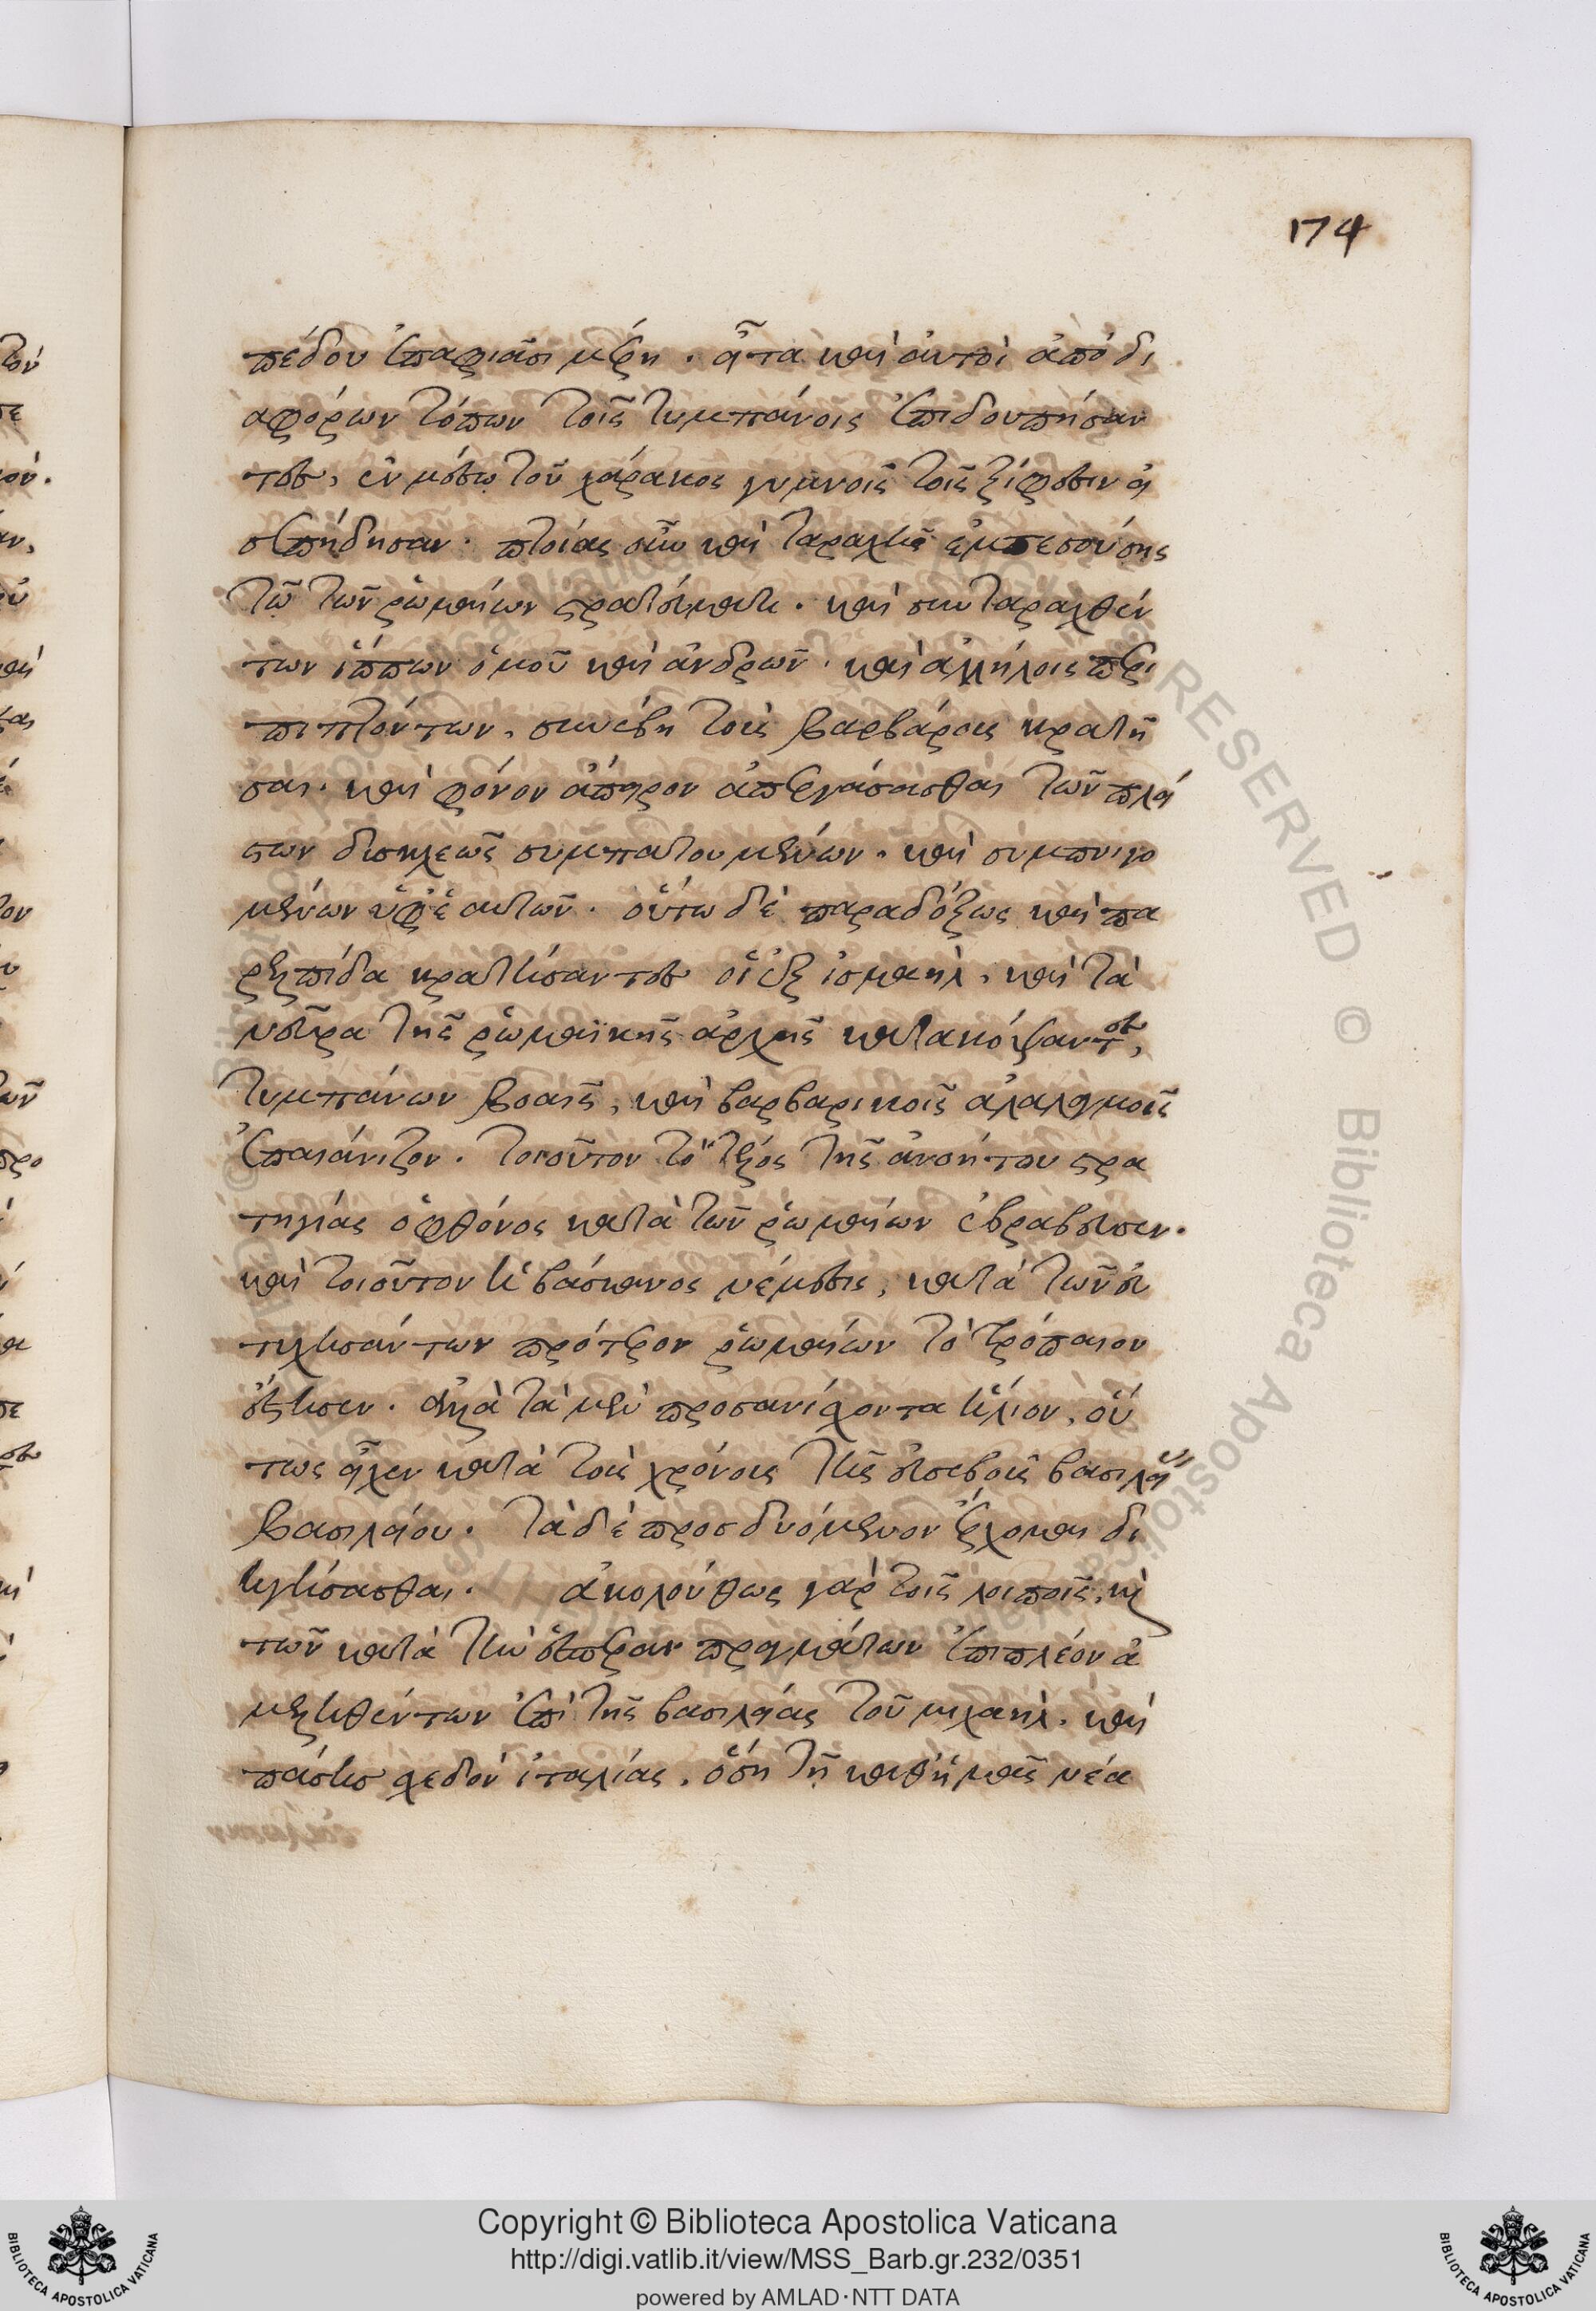 174
πέδου ἐπαφιᾶσι μέρη. εἶτα καὶ αὐτοὶ ἀπὸ δι
αφόρων τόπων τοῖς τυμπάνοις ἐπιδουπήσαν
τες, ἐν μέσῳ τοῦ χάρακος γυμνοῖς τοῖς ξίφεσιν εἰ
σεπήδησαν. πτοίας οὖν καὶ ταραχῆς ἐμπεσούσης
τῷ τῶν ῥωμαίων στρατεύματι. καὶ συνταραχθέν
των ἵππων ὁμοῦ καὶ ἀνδρῶν. καὶ ἀλλήλοις περι
πιπτόντων, συνέβη τοὺς βαρβάρους κρατῆ
σαι. καὶ φόνον ἄπειρον ἀπεργάσασθαι τῶν πλεί
στων δυσκλεῶς συμπατουμένων. καὶ συμπνιγο
μένων ὑφ' ἑαυτῶν. οὕτω δὲ παραδόξως καὶ πα
ρ' ἐλπίδα κρατήσαντες οἱ ἐξ ἰσμαὴλ, καὶ τὰ
νεῦρα τῆς ῥωμαϊκῆς ἀρχῆς κατακόψαντες,
τυμπάνων βοαῖς, καὶ βαρβαρικοῖς ἀλαλαγμοῖς
ἐπαιάνιζον. τοιοῦτον τὸ τέλος τῆς ἀνοήτου στρα
τηγίας ὁ φθόνος κατὰ τῶν ῥωμαίων ἐβράβευσεν.
καὶ τοιοῦτον ἡ βάσκανος νέμεσις, κατὰ τῶν εὐ
τυχησάντων πρότερον ῥωμαίων τὸ τρόπαιον
ἔστησεν. ἀλλὰ τὰ μὲν πρὸς ἀνίσχοντα ἥλιον, οὕ
τως εἶχεν κατὰ τοὺς χρόνους τῆς εὐσεβοῦς βασιλείας
βασιλείου. τὰ δὲ πρὸς δυόμενον ἔρχομαι δι
ηγήσασθαι. ἀκολούθως γὰρ τοῖς λοιποῖς, καὶ
τῶν κατὰ τὴν ἑσπέραν πραγμάτων ἐπιπλέον ἀ
μεληθέντων ἐπὶ τῆς βασιλείας τοῦ μιχαὴλ. καὶ
πάσης σχεδὸν ἰταλίας, ὅση τῇ καθ' ἡμᾶς νέα
Copyright © Biblioteca Apostolica Vaticana
http://digi.vatlib.it/view/MSS_Barb.gr.232/0351
powered by AMLAD·NTT DATA